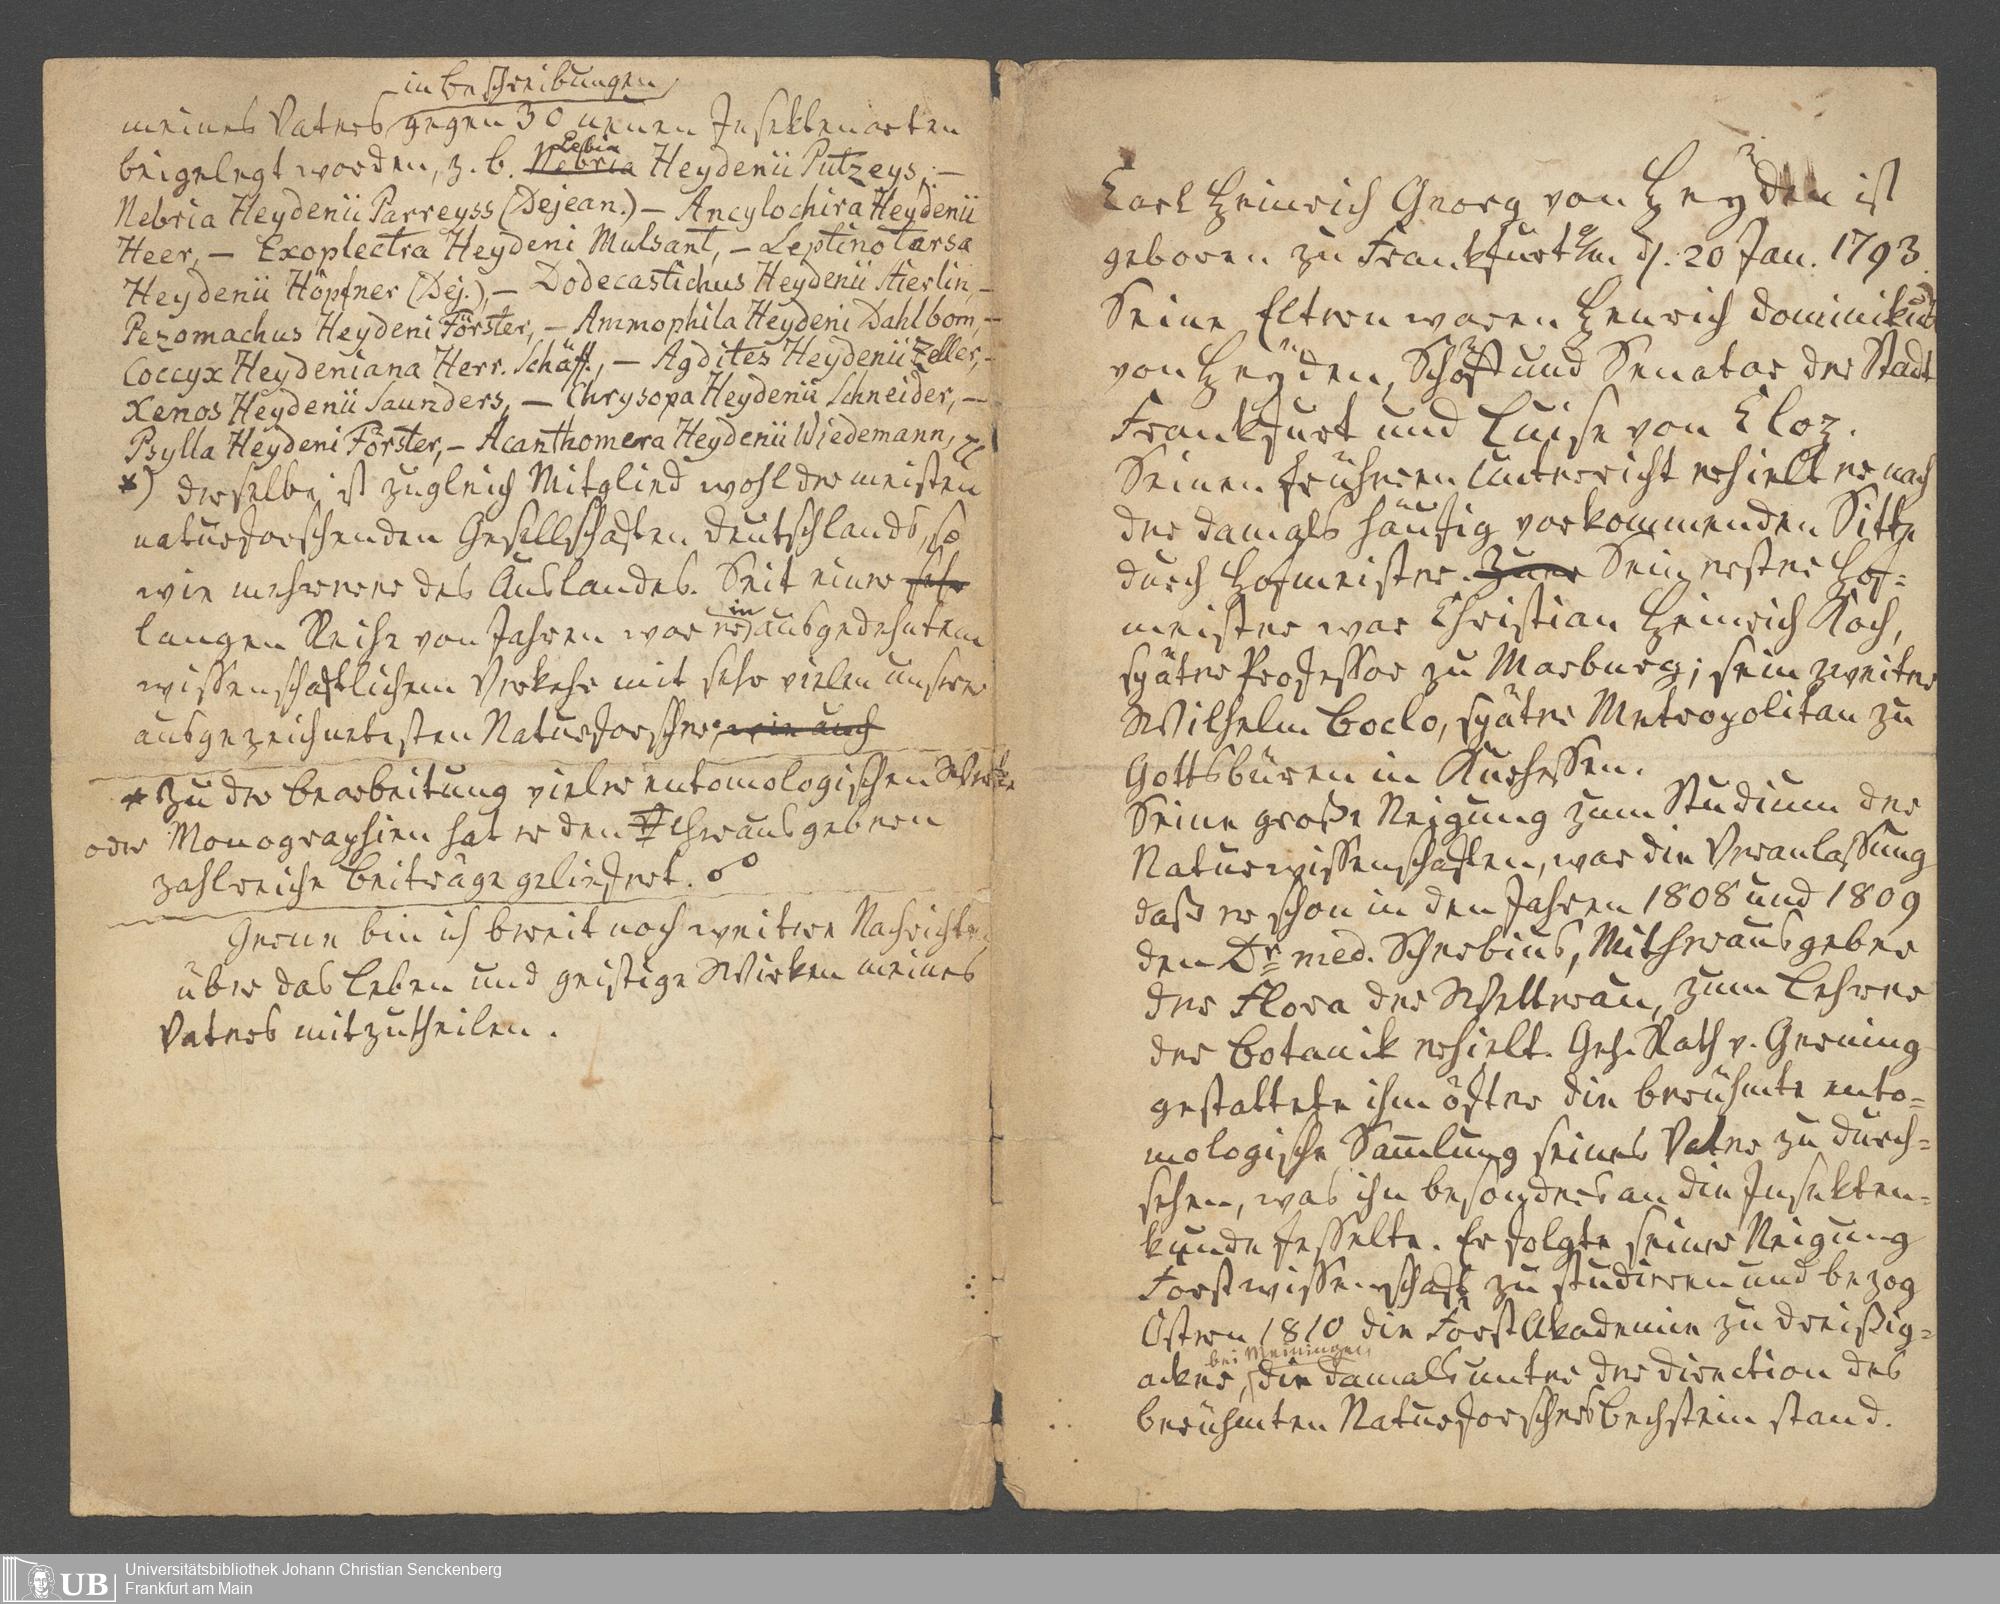 in Beschreibungen
meines Vaters gegen 30 neuen Insektenarten
beigelegt worden, z. b. Nebria Lebia Heydenii Putzeys, –
Nebria Heydenii Parreyss (Dejean.) – Ancylochira Heydenii
Heer, – Exoplectra Heydeni Mulsant, – Leptinotarsa
Heydenii Höpfner (Dej.), – Dodecastichus Heydenii Stierlin, –
Pezomachus Heydeni Förster, – Ammophila Heydeni Dahlbom, –
Coccyx Heydeniana Herr. Schäff., – Agdites Heydenii Zeller, –
Xenos Heydenii Saunders, – Chrysopa Heydenii Schneider, –
Psylla Heydeni Förster, – Acanthomera Heydenii Wiedemann,
*) derselbe ist zugleich Mitglied wohl der meisten
naturforschenden Gesellschaften Deutschlands, so
wie mehrerer des Auslandes. Seit einer sehr
langen Reihe von Jahren war er in ausgedehntem
wissenschaftlichem Verkehr mit sehr vielen unserer
ausgezeichnetesten Naturforscher, wie auch
* Zu der Bearbeitung vieler entomologischen Werke
oder Monographien hat er den Herausgebern
zahlreiche Beiträge geliefert.
Gerne bin ich bereit noch weitere Nachrichten
über das Leben und geistige Wirken meines
Vaters mitzutheilen.
Carl Heinrich Georg von Heyden ist
geboren zu Frankfurt a/m d. 20 Jan. 1793.
Seine Eltern waren Henrich Dominikus
von Heyden, Schöff und Senator der Stadt
Frankfurt und Luise von Cloz.
Seinen früheren Unterricht erhielt er nach
der damals häufig vorkommenden Sitte
durch Hofmeister. Zuer Sein erster Hof=
meister war Christian Heinrich Koch,
später Professor zu Marburg; sein zweiter
Wilhelm Boclo, später Metropolitan zu
Gottsbüren in Kurhessen.
Seine große Neigung zum Studium der
Naturwissenschaften, war die Veranlassung
daß er schon in den Jahren 1808 und 1809
den Dr. med. Scherbius, Mitherausgeber
der Flora der Wetterau, zum Lehrer
der Botanik erhielt. Geh. Rath v. Gerning
gestattete ihm öfter die berühmte ento=
mologische Sam̄lung seines Vater zu durch=
sehen, was ihn besonders an die Insekten=
kunde fesselte. Er folgte seiner Neigung
Forstwissenschaft zu studieren und bezog
Ostern 1810 die Forst Akademie zu Dreißig=
bei Meiningen,
acker, die damals unter der Direction des
berühmten Naturforschers Bechstein stand.
Universitätsbibliothek Johann Christian Senckenberg
Frankfurt am Main
UB